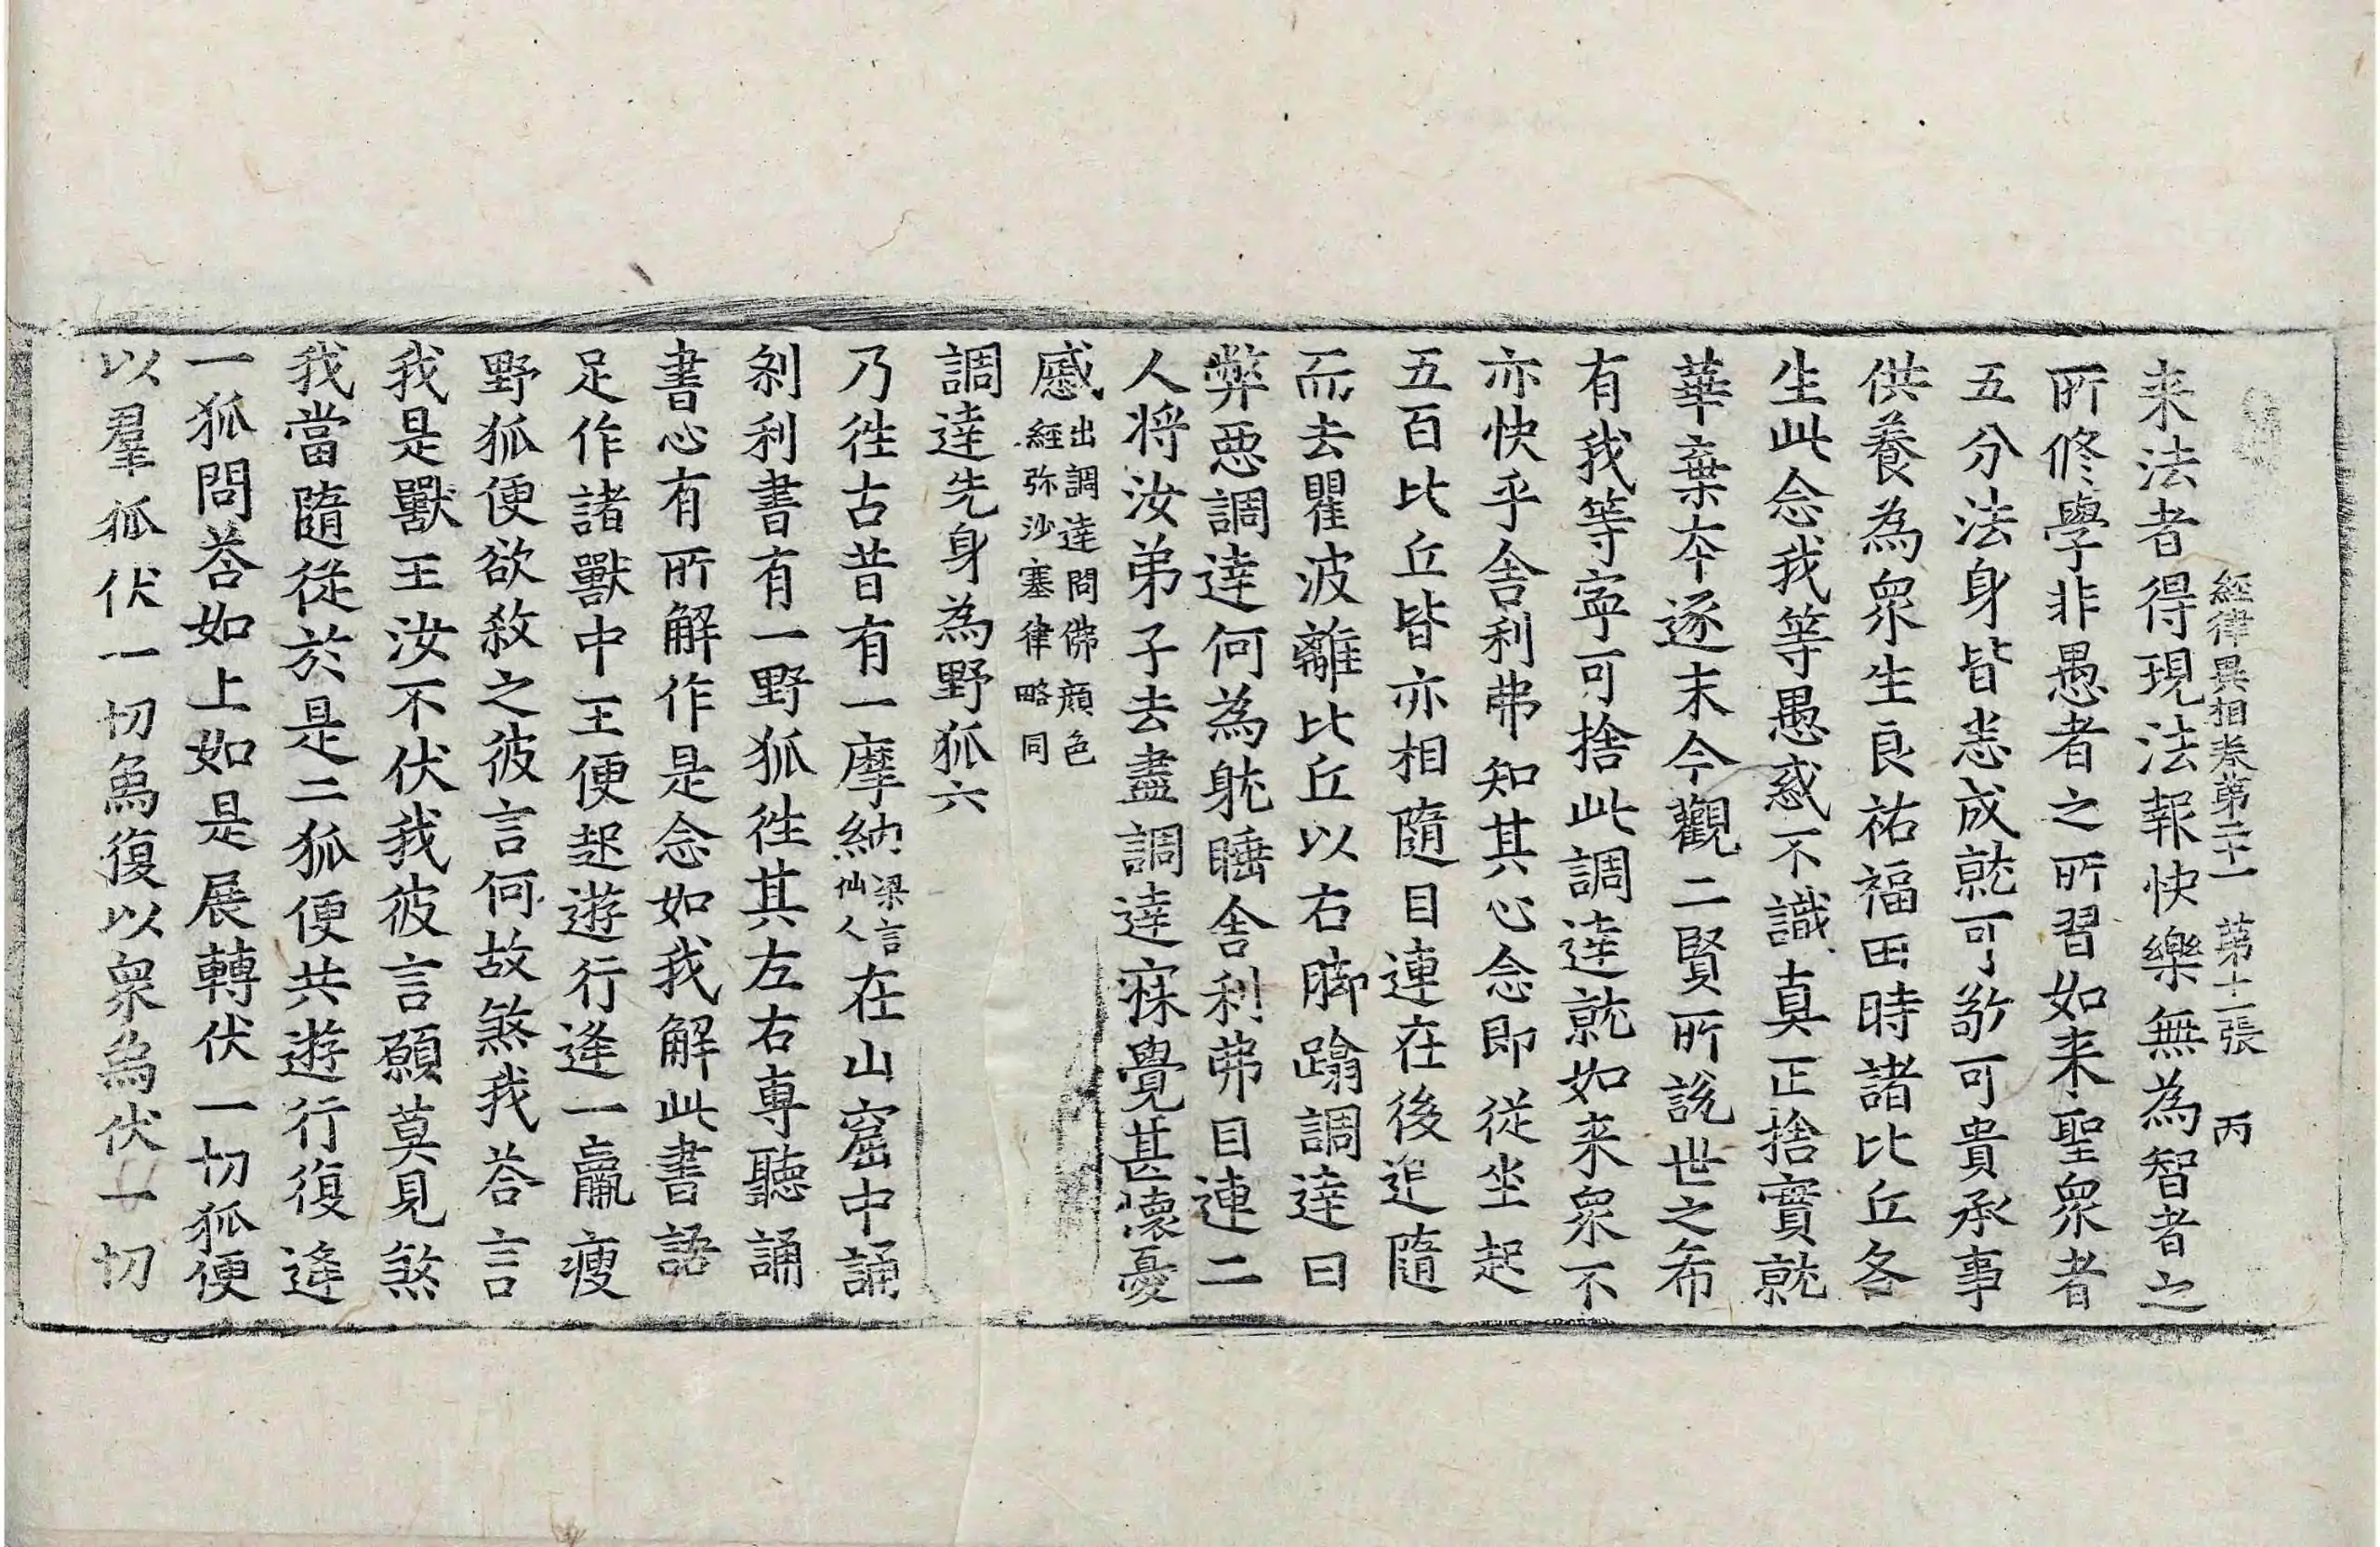 經律異相卷第二十一 第十二張 丙
来法者得現法報快樂無為智者之
所修學非愚者之所習如来聖衆者
五分法身皆悉成就可敬可貴承事
供養為衆生良祐福田時諸比丘各
生此念我等愚惑不識真正捨實就
華棄夲逐末今觀二賢所說世之希
有我等寧可捨此調達就如来衆不
亦快乎舍利弗知其心念即從坐起
五百比丘皆亦相隨目連在後追隨
而去瞿波離比丘以右脚蹹調達曰
弊惡調達何為躭睡舍利弗目連二
人將汝弟子去盡調達寐覺甚懷憂
慼出調達問佛顔色經弥沙塞律略同
調達先身為野狐六
乃徃古昔有一摩納梁言仙人在山窟中誦
剎利書有一野狐徃其左右專聽誦
書心有所解作是念如我解此書語
足作諸獸中王便起遊行逢一羸瘦
野狐便欲敘之彼言何故煞我荅言
我是獸王汝不伏我彼言願莫見煞
我當隨從於是二狐便共遊行復逢
一狐問荅如上如是展轉伏一切狐便
以羣狐伏一切為復以衆為伏一切